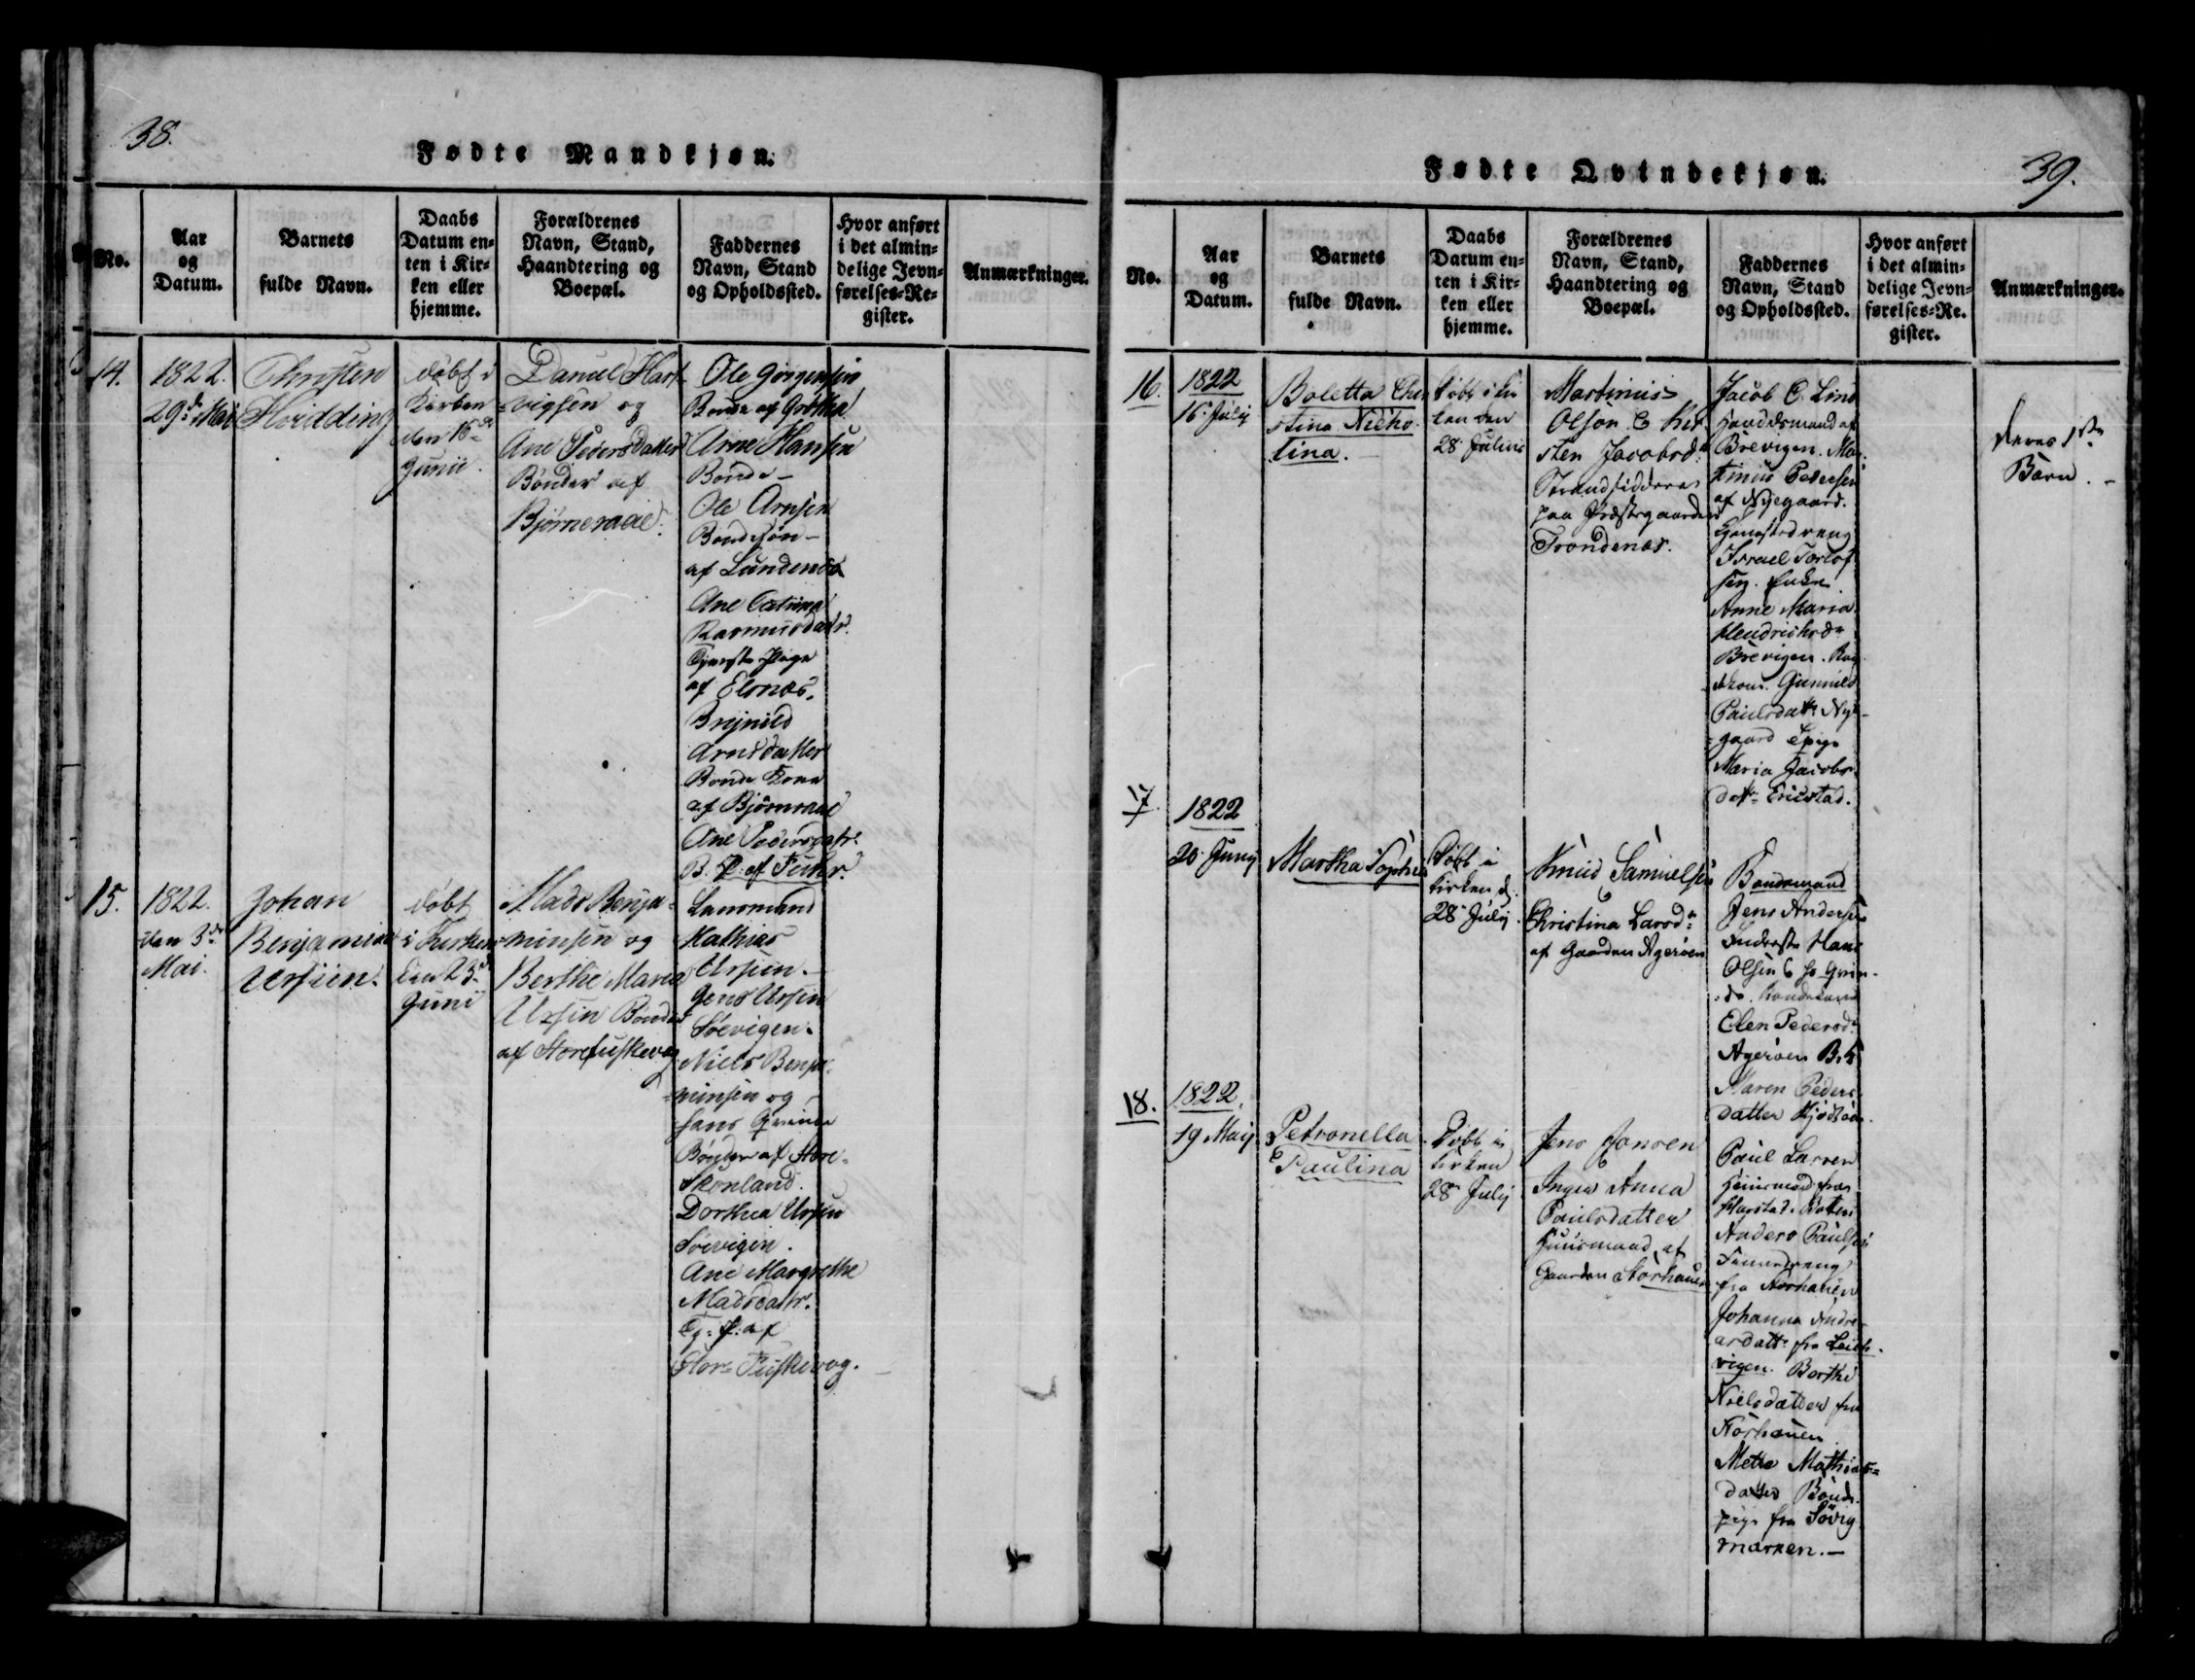 38.
Fødte Mandkjøn.
No.
Aar
og
Datum.
Barnets
fulde Navn.
Daabs
Datum en-
ten i Kir-
ken eller
hjemme.
Forældrenes
Navn, Stand,
Haandtering og
Boepæl.
Faddernes
Navn, Stand
og Opholdssted.
Hvor anført
i det almin-
delige Jevn-
førelses-Re-
gister.
Anmærkninger.
14.
1822.
29de Mai
Christen
Hvidding
døbt i
Kirken
den 16de
Junii.
Daniel Hart-
vigsen og
Ane Pedersdatter
Bönder af
Bjørneraae.
Ole Jørgensen
Bonde af
Arne Hansen
Bonde -
Ole Arnsen
Bondesøn -
af Lundenes
Ane Catrina
Rasmusdatr.
Tjeneste Pige
af Elsnæs.
Brynild
Arnsdatter
Bonde Kone
af Bjørnraae
Ane Pedersdatr.
B. P. af
15.
1822.
den 3de
Mai.
Johan
Benjamin
Ursien.
døbt
i Kirken
den 23de
Junii
Mads Benja-
minsen og
Berthe Maria
Ursin Bönder
af Storefuskevog
Lansmand
Mathias
Ursien.
Jens Ursin
Søevigen.
Niels Benja-
minsen og
Hans
Bönder af Store-
Skonland.
Dorthea Ursin
Søevigen.
Ane Margrethe
Madsdatr.
Tj. P. af
Stor- Fuskevog.
39.
Fødte Qvindekjøn.
No.
Aar
og
Datum.
Barnets
fulde Navn.
Daabs
Datum en-
ten i Kir-
ken eller
hjemme.
Forældrenes
Navn, Stand,
Haandtering og
Boepæl.
Faddernes
Navn, Stand
og Opholdssted.
Hvor anført
i det almin-
delige Jevn-
førelses-Re-
gister.
Anmærkninger.
16.
1822
16 July
Boletta Chri
stina Nicho-
lina.
Døbt i Kir
ken den
28 Julius
Martinus
Olsen & Kir
sten Jacobsdr
Strandsiddere
paa Præstegaarden
Trondenæs.
Jacob C. Lind
Handelsmand af
Brevigen. Mar
tinus Pedersen
af Nygaard.
Tjenestedreng
Israel Torlof
sen.
Anne Maria
Hendrichsdr
Brevigen.
Gunnild
Paulsdatr Ny-
gaard Pige
Maria Jacobs
datr Ericstad.
deres 1ste
Barn. -
17
1822
20 Juny
Martha Sophie
Døbt i
Kirken d.
28 July.
Knud Samuelsen
Christina Larsdr
af Gaarden Agerøen
Bondemand
Jens Andersen
Hans
Olsen
Elen Pedersdr
Agerøen B. K.
Maren Peders-
datter
18.
1822.
19 Maij
Petronella
Paulina
Døbt i
Kirken
28 July
Jens Jonsen
Inger Anna
Paulsdatter
Huusmand af
Gaarden Storhaugen
Paul Larsen
Huusmand fra
Anders Paulsen
fra Storhaugen
Johanna Andre-
asdatr fra
vigen. Berthe
Nielsdatter fra
Storhaugen
Metta Mathias-
datter Bonde-
pige fra Søvig
marken. -